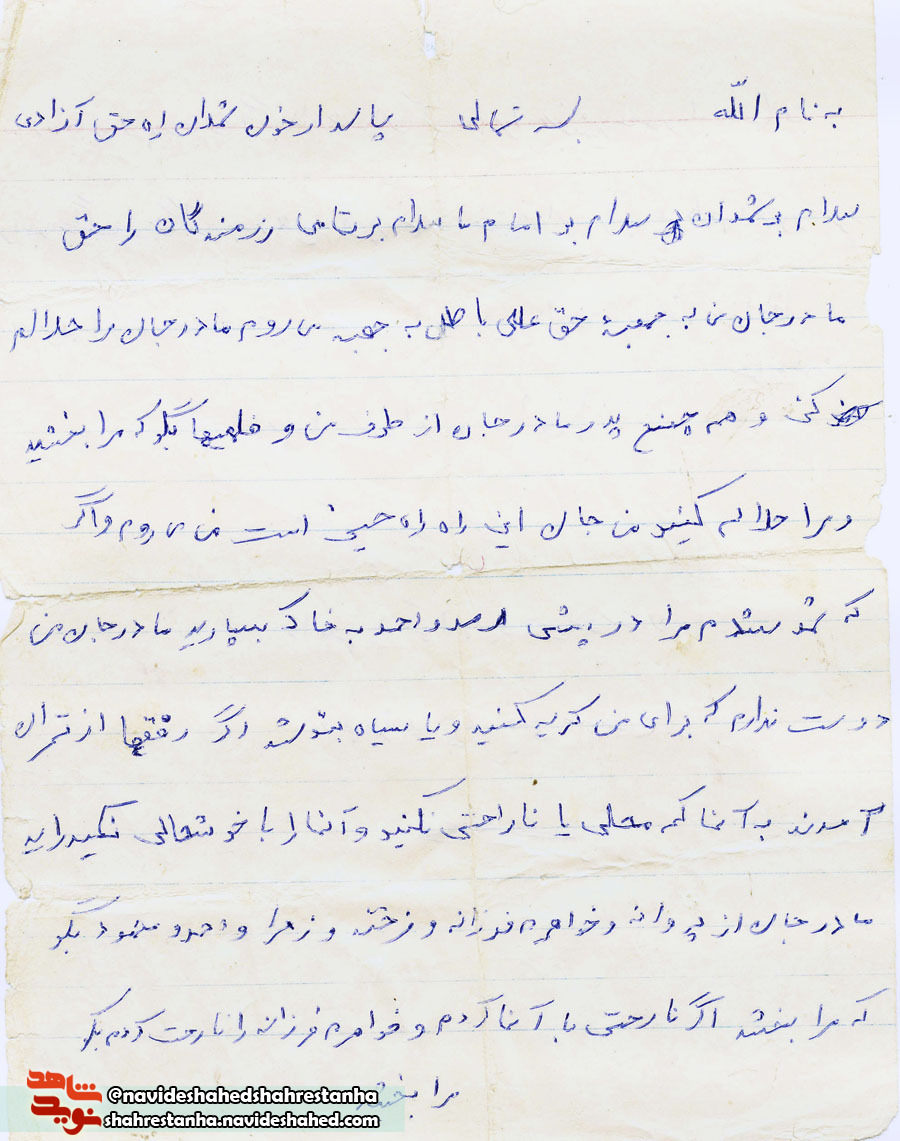 به نام الله بسمه تعالی پاسدار خون شهدان راه حق آزادی
سلام بر شهدان سلام بر امام ما سلام بر تمامی رزمندگان راحق
مادرجان من به جبهه حق علی باطل به جبهه می روم مادرجان مرا حلالم
کنی و هم چنین پدر مادرجان از طرف من و بگو که مرا بخشید
و مرا حلالم کنید من جان این راه راه حسین است من می روم و اگر
که شدم مرا در پیش احمد به خاک بسپارید مادرجان من
دوست ندارم که برای من گریه کنید و یا سیاه بپوشد اگر رفقها از تهران
آمدند به آنها کم محلی یا ناراحتی نکنید و آنها را با خوشحالی نگیدارید
مادرجان از پروانه و خواهرم فرزانه و فرخنده و زهرا و احمد و محمود بگو
که مرا بخشد اگر نارحتی با آنها کردم و خواهرم فرزانه را نارحت کردم بگو
مرا بخشد
شاهد
نوید
@navideshahedshahrestanha
shahrestanha.navideshahed.com